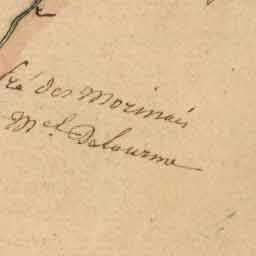 Pré des Morinais
Mel. Delourme